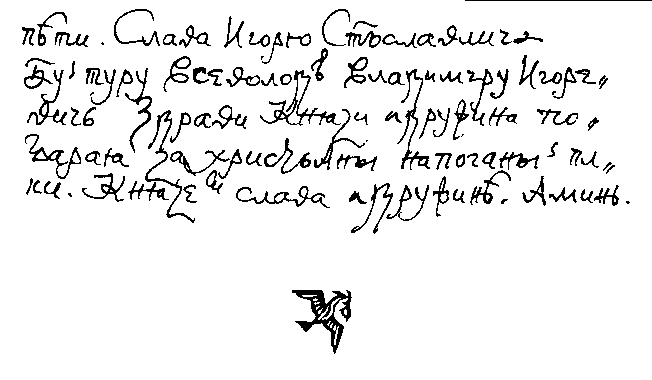 пѣти. Слава Игорю Стъславлича
Буй туру Всеволодѣ Владимиру Игоре„
вичь Здрави Князи и дружина по„
барая за христьяны на поганыи пл„
ки. Княземъ слава и дружинѣ. Аминь.